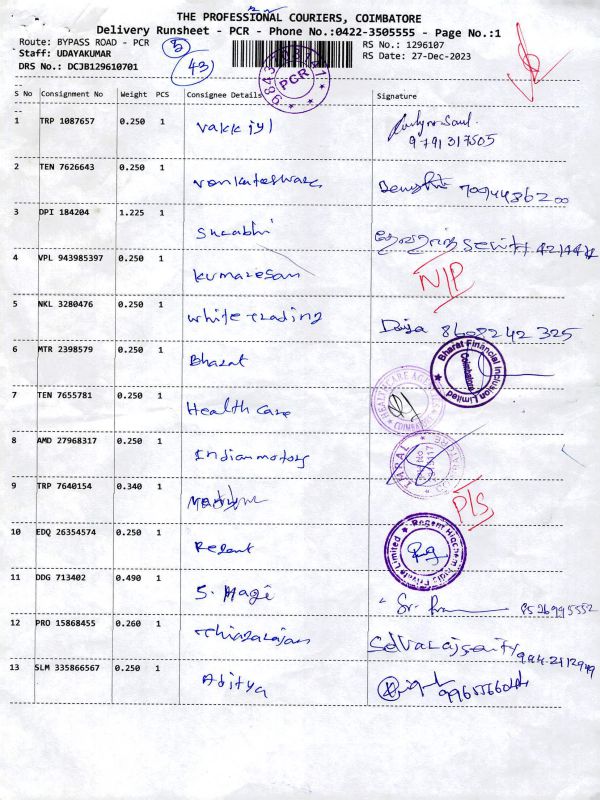 THE PROFESSIONAL COURIERS, COIMBATORE
Delivery Runsheet - PCR - Phone No.:0422-3505555 - Page No.:1
Route: BYPASS ROAD - PCR 5 RS No.: 1296107
Staff: UDAYAKUMAR 43 RS Date: 27-Dec-2023
DRS No.: DCJB129610701
PCR
S No Consignment No Weight PCS Consignee Details Signature
1 TRP 1087657 0.250 1
9791317505
2 TEN 7626643 0.250 1 Venkateshwara
3 DPI 184204 1.225 1 Surabhi
4 VPL 943985397 0.250 1 Kumaresan N/P
5 NKL 3280476 0.250 1 White trading Daya
6 MTR 2398579 0.250 1 Bharat
Bharat Financial Inclusion Limited Coimbatore
7 TEN 7655781 0.250 1 Health care
8 AMD 27968317 0.250 1 Indian motors
9 TRP 7640154 0.340 1 P/S
10 EDQ 26354574 0.250 1 Regent
11 DDG 713402 0.490 1 S. Magi 9526995552
12 PRO 15868455 0.260 1 Thiagarajan
13 SLM 335866567 0.250 1 Aditya